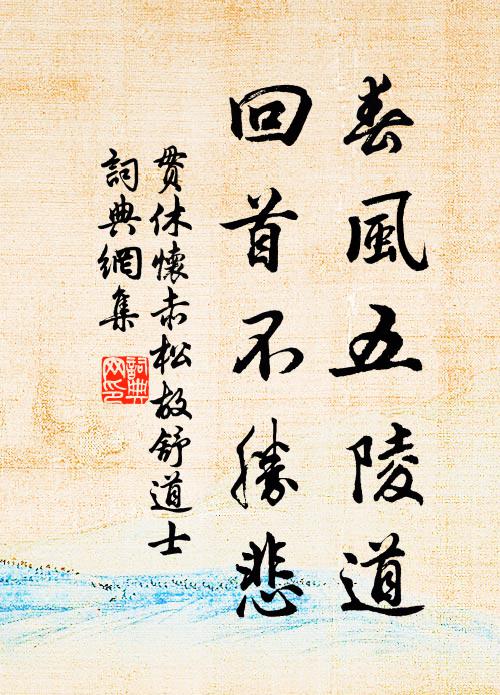 春風五陵道
回首不勝悲
貫休懷赤松故舒道士
詞典網集
詞典
网印